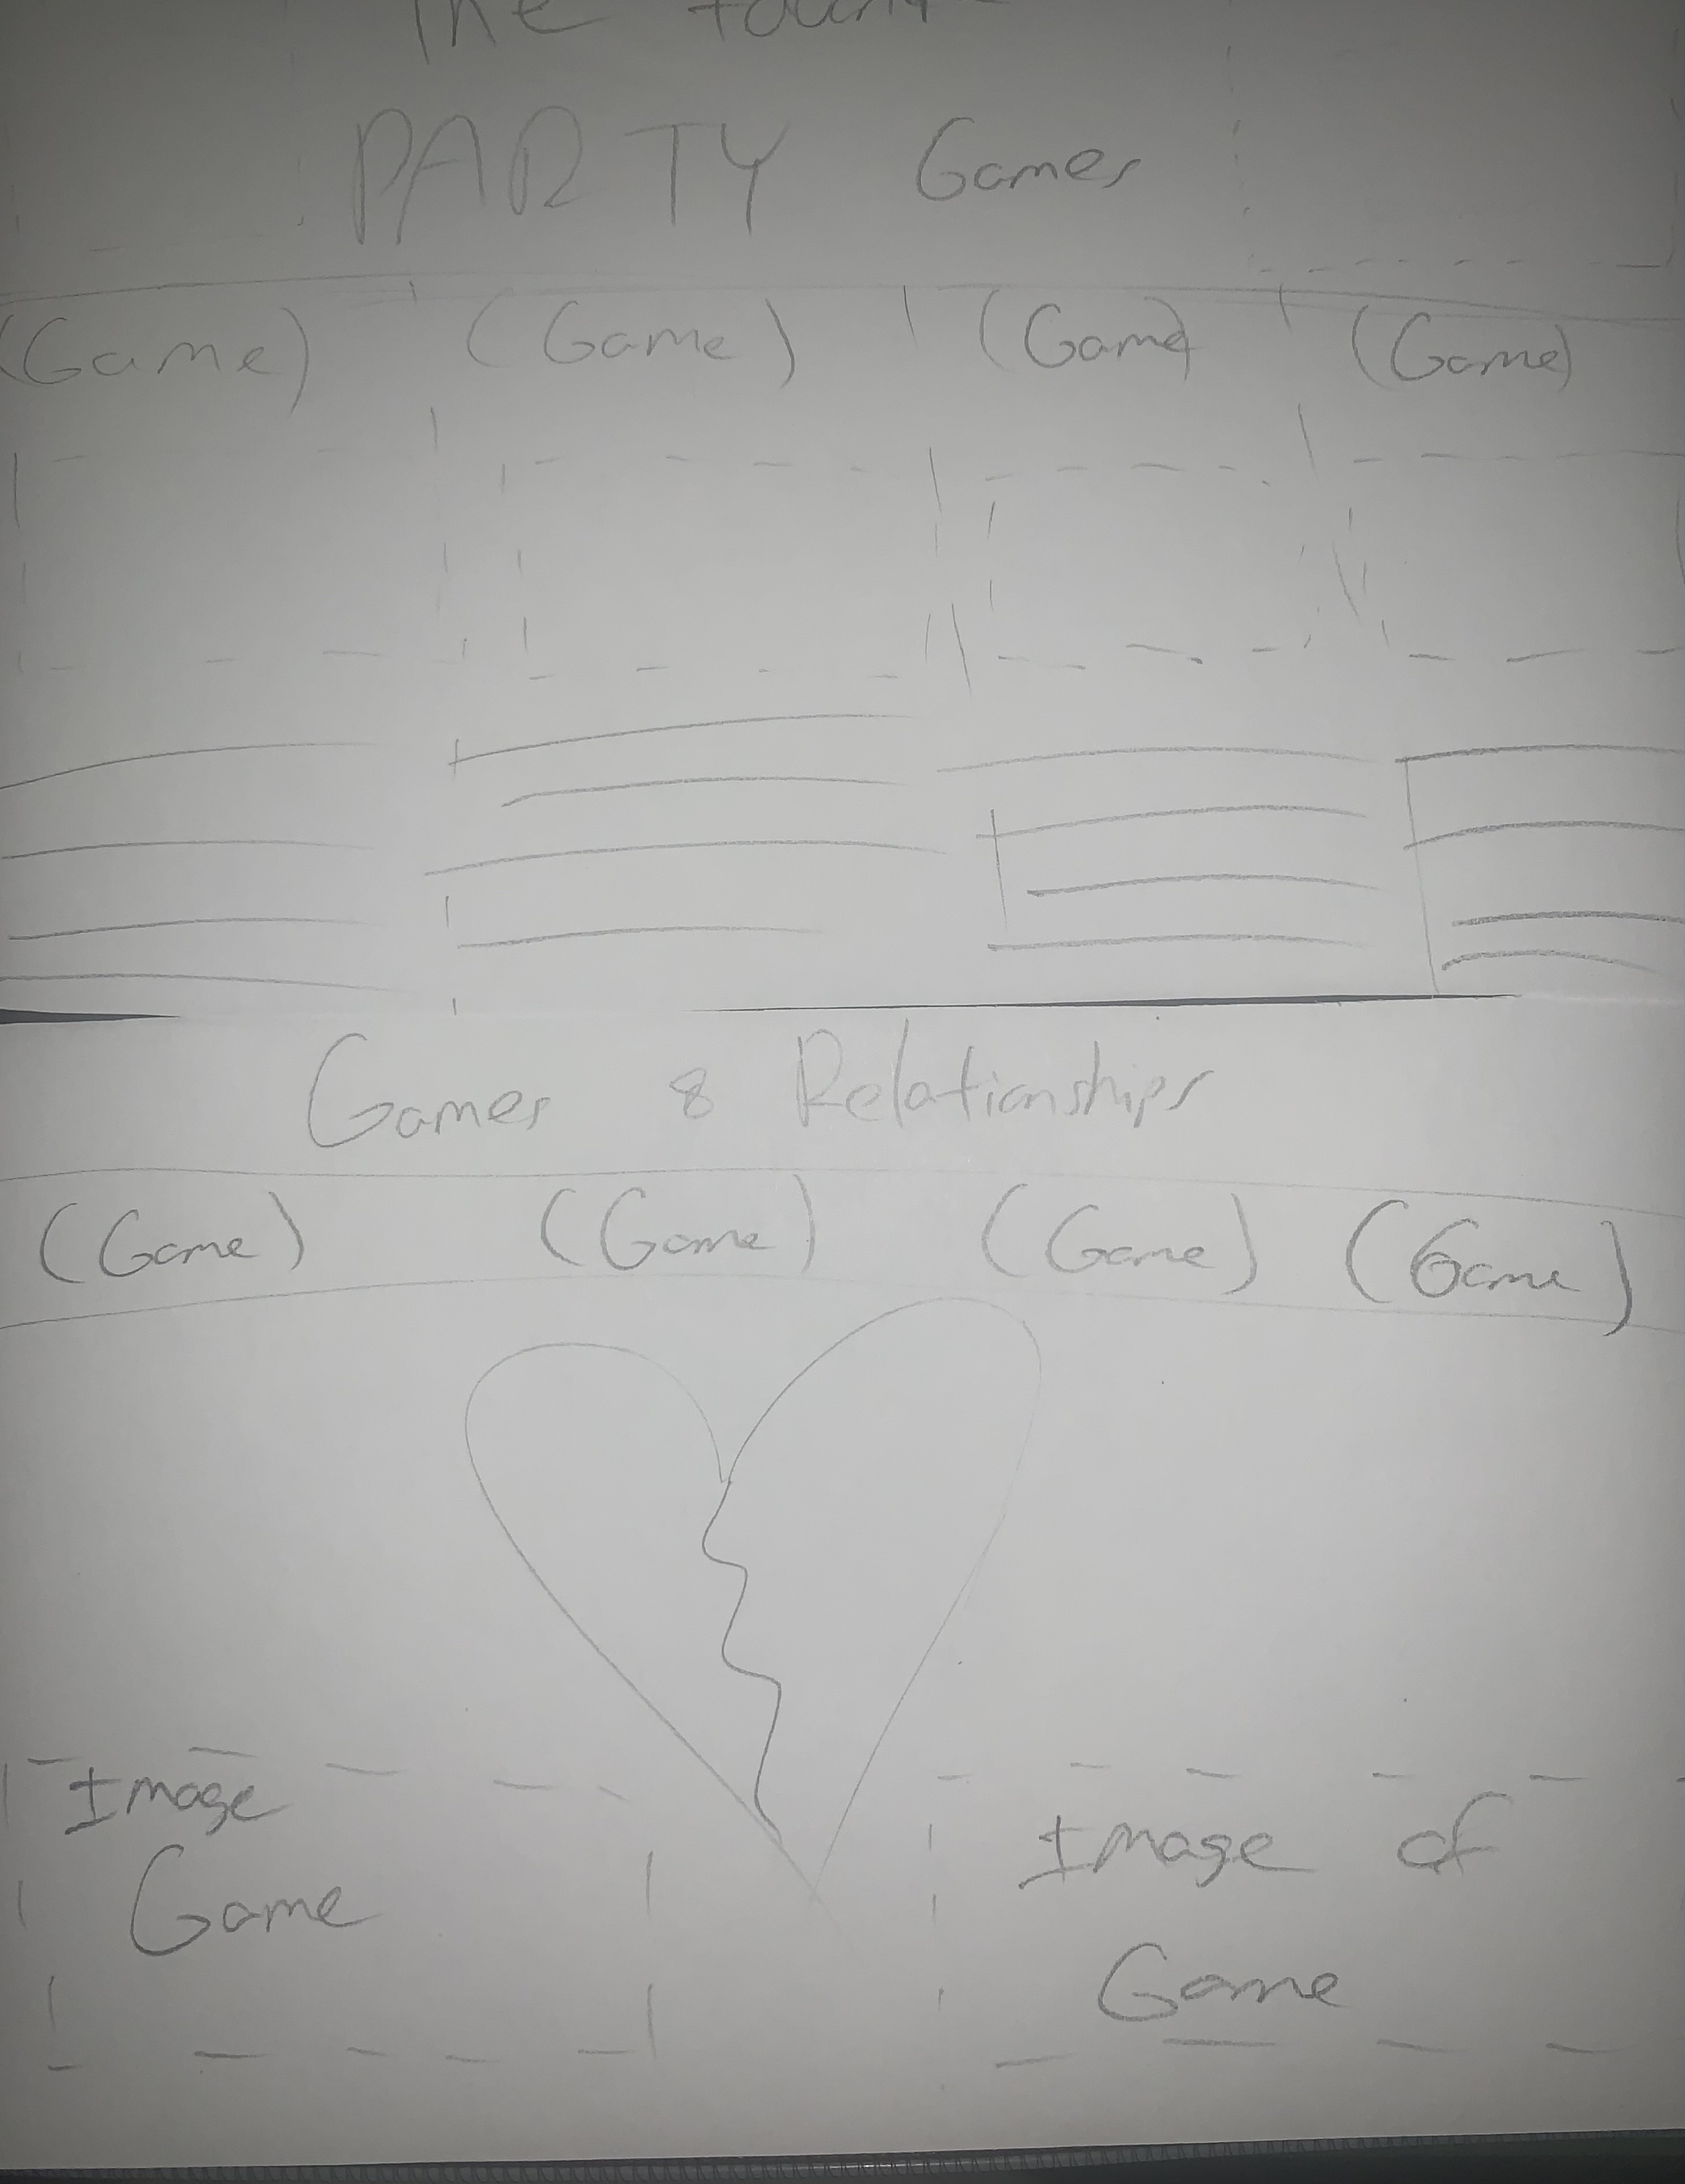 The
PARTY Games
(Game) (Game) (Game) (Game)
Games & Relationships
(Game) (Game) (Game) (Game)
Image
Game
Image of
Game